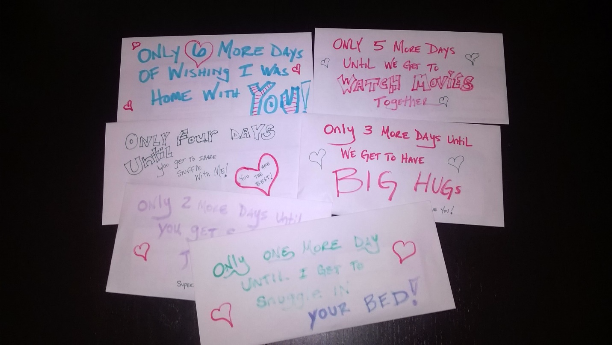 ONLY 6 MORE DAYS
OF WISHING I WAS
HOME WITH YOU!
ONLY 5 MORE DAYS
UNTIL WE GET TO
WATCH MOVIES
Together
ONLY FOUR DAYS
UNTIL
you get to share
with me!
YOU ARE THE
BEST!
Only 3 MORE DAYS UNTIL
WE GET TO HAVE
BIG HUGS
Only 2 MORE DAYS UNTIL
YOU GET
Only ONE MORE DAY
UNTIL I GET TO
Snuggle in
YOUR BED!